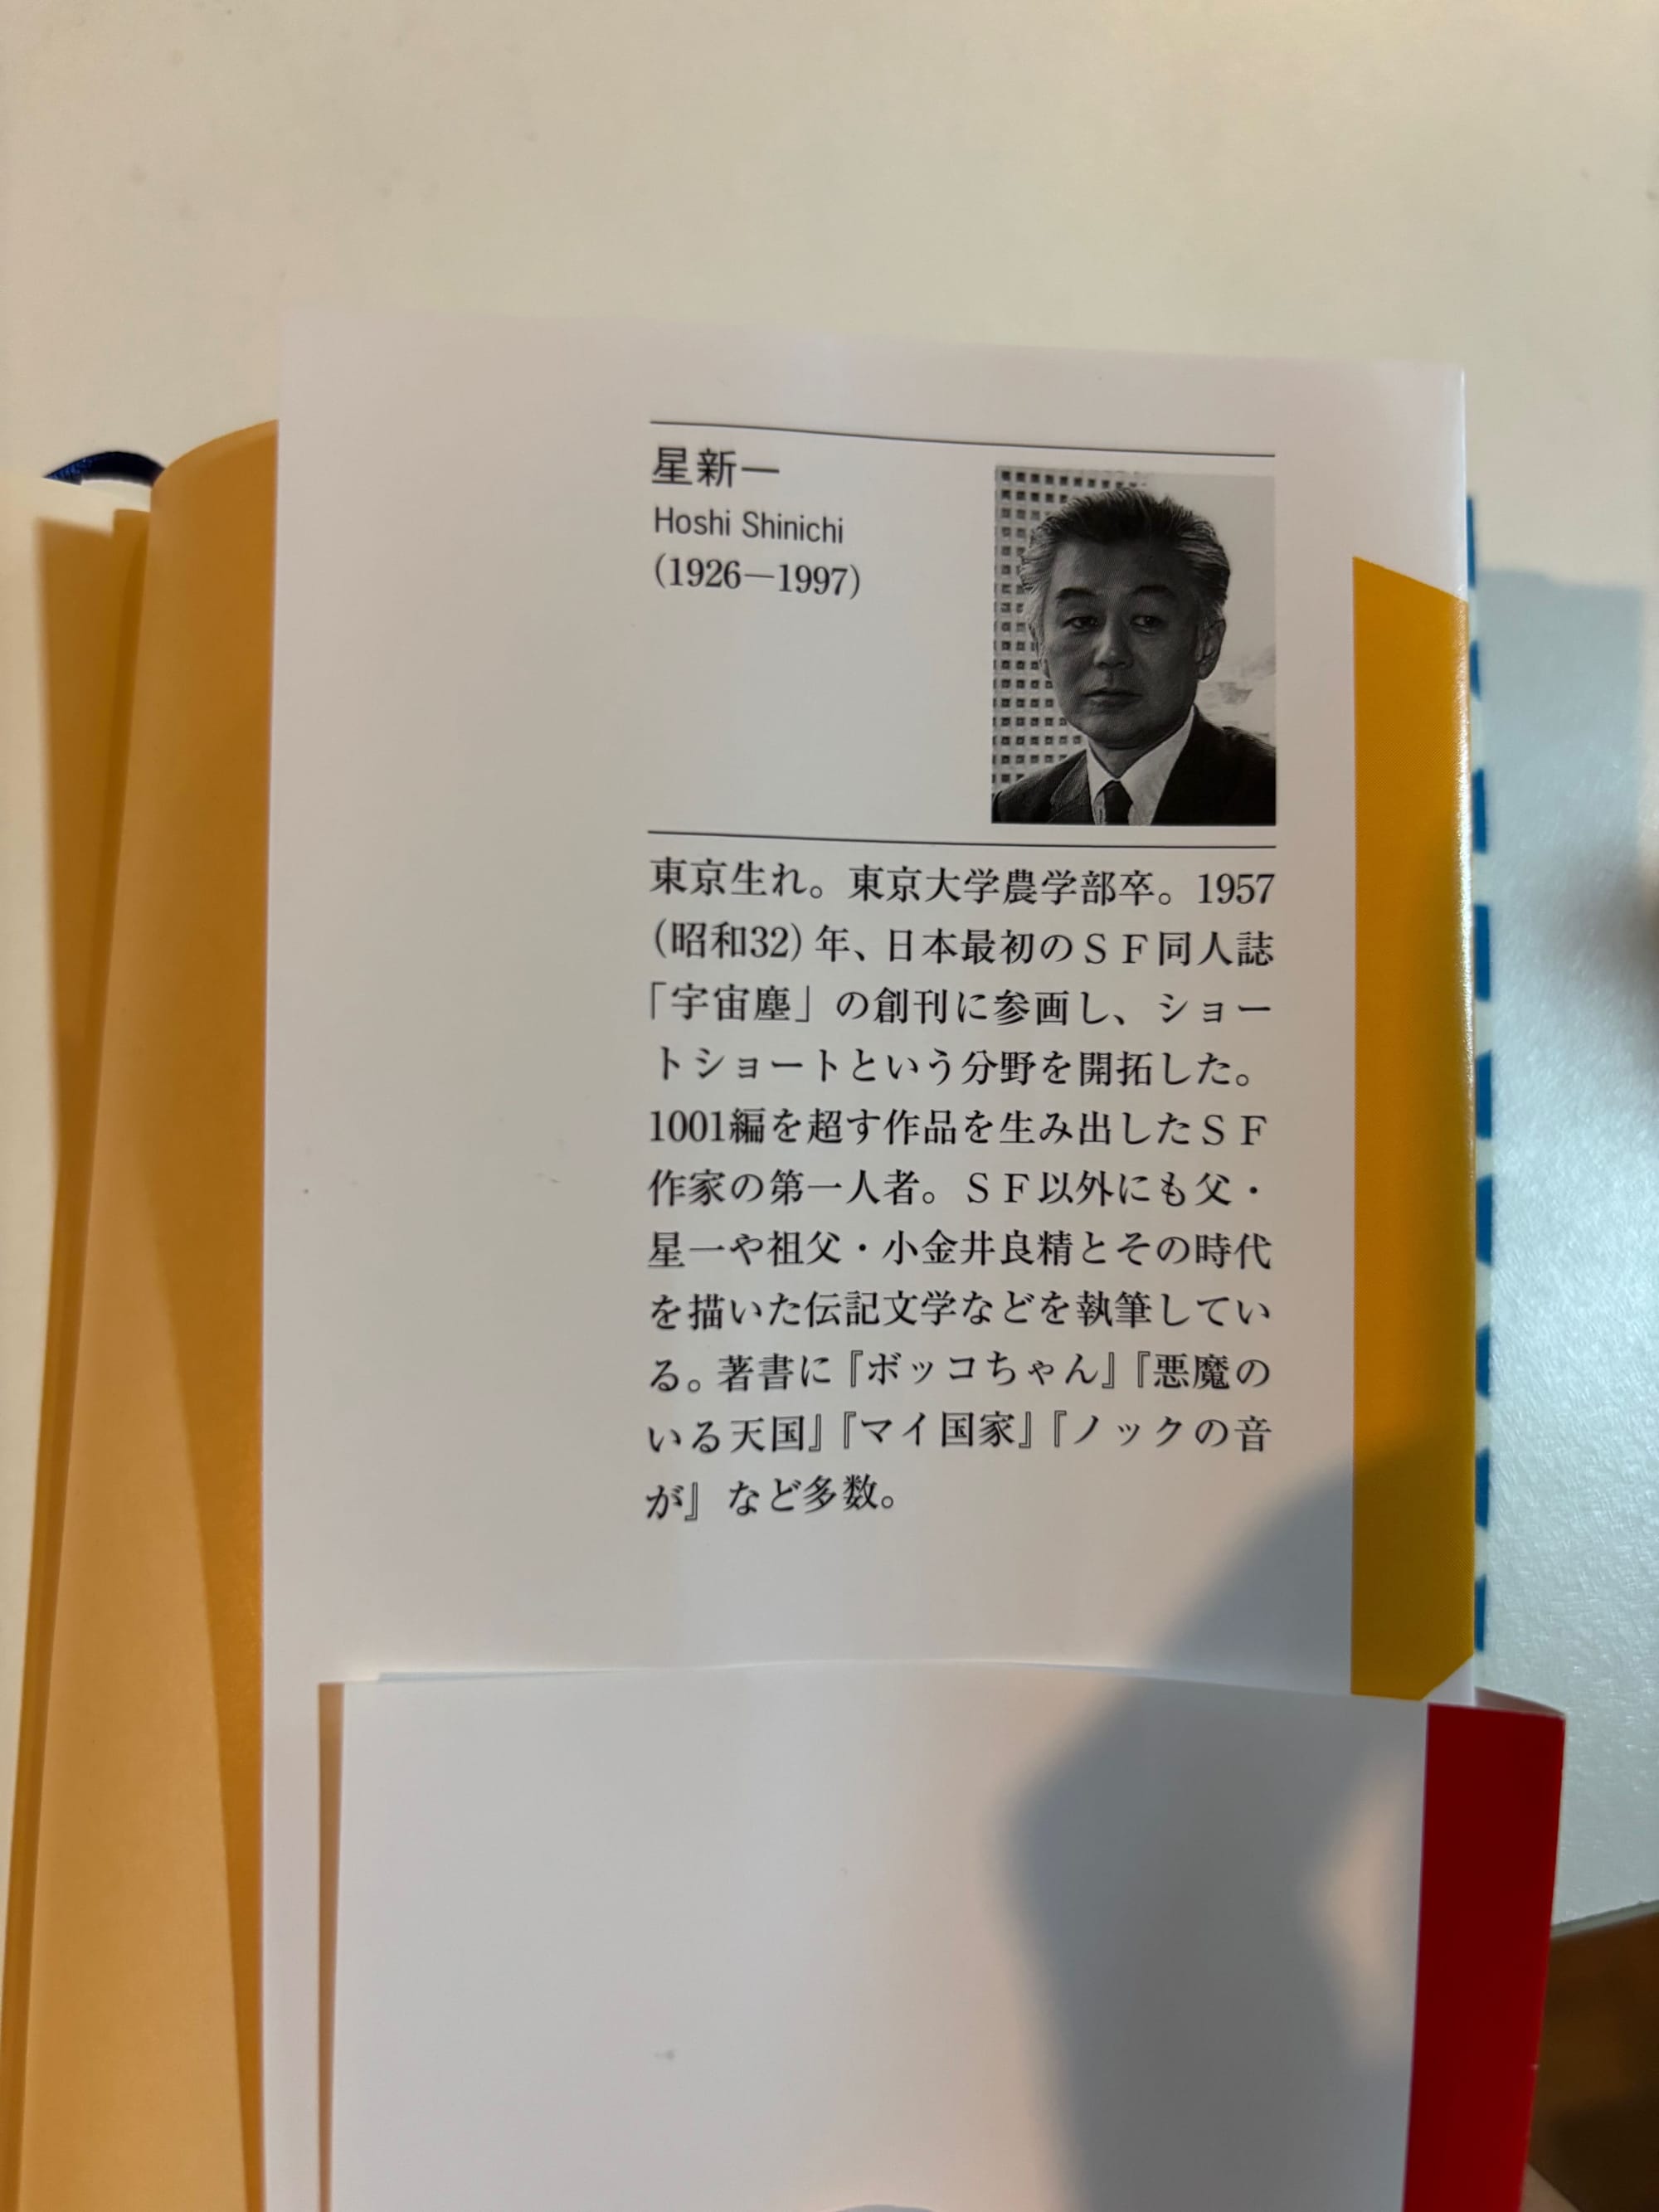 星新一
Hoshi Shinichi
(1926―1997)
東京生れ。東京大学農学部卒。1957
(昭和32)年、日本最初のＳＦ同人誌
「宇宙塵」の創刊に参画し、ショー
トショートという分野を開拓した。
1001編を超す作品を生み出したＳＦ
作家の第一人者。ＳＦ以外にも父・
星一や祖父・小金井良精とその時代
を描いた伝記文学などを執筆してい
る。著書に『ボッコちゃん』『悪魔の
いる天国』『マイ国家』『ノックの音
が』など多数。